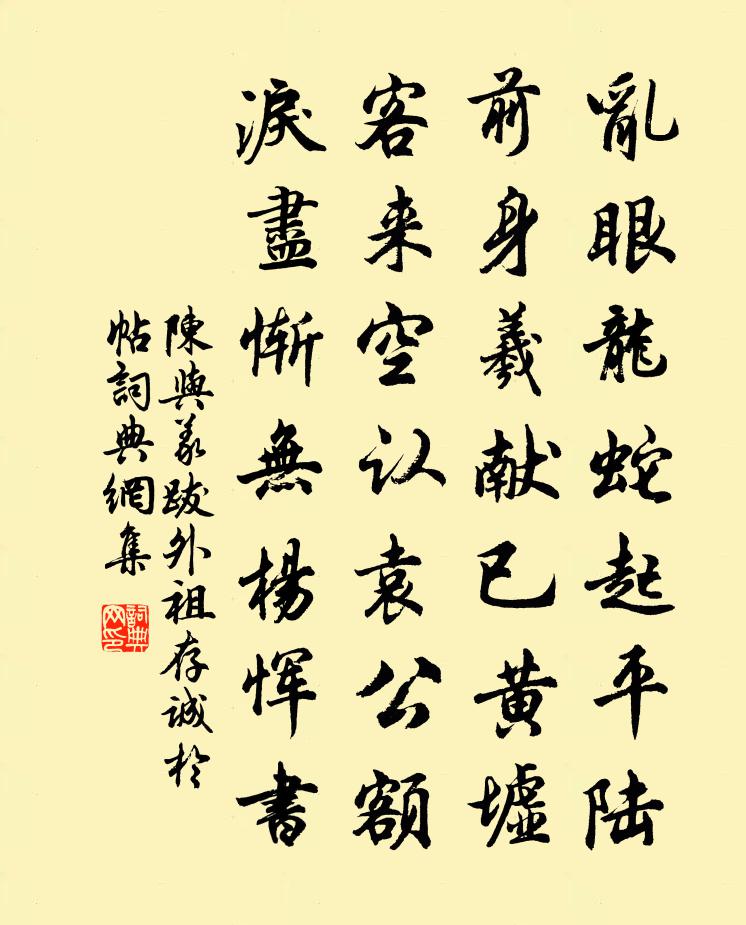 亂眼龍蛇起平陆
前身羲献已黄墟
客来空认袁公額
淚盡慚無楊惲書
陳與義跋外祖存诚於
帖詞典網集
詞典网印